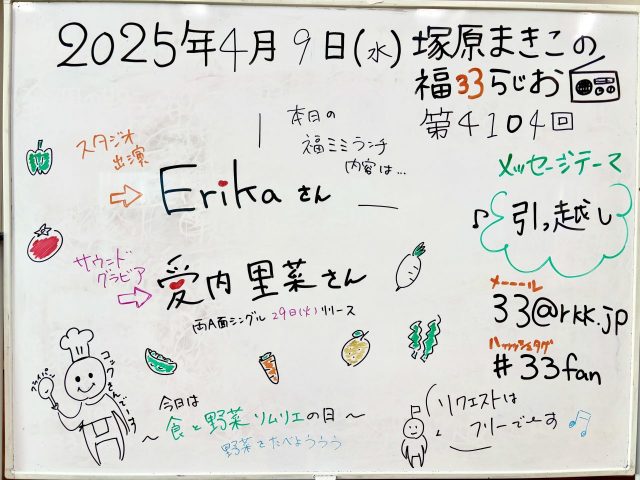 2025年4月9日(水) 塚原まきこの
福33らじお
第4104回
本日の
福ミミランチ
内容は…
スタジオ
出演
Erikaさん
メッセージテーマ
引っ越し
サウンド
グラビア
愛内里菜さん
両A面シングル 29日(火)リリース
メーーール
33@rkk.jp
ハッシュタグ
#33fan
コックさんでーす
フライパン
〜今日は
食と野菜ソムリエの日〜
野菜をたべようううう
リクエストは
フリーでーす